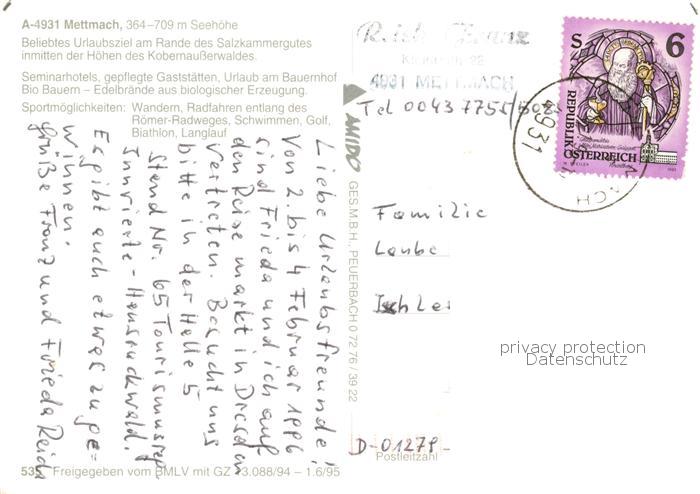 A-4931 Mettmach, 364–709 m Seehöhe
Beliebtes Urlaubsziel am Rande des Salzkammergutes
inmitten der Höhen des Kobernaußerwaldes.
Seminarhotels, gepflegte Gaststätten, Urlaub am Bauernhof
Bio Bauern – Edelbrände aus biologischer Erzeugung.
Sportmöglichkeiten: Wandern, Radfahren entlang des
Römer-Radweges, Schwimmen, Golf,
Biathlon, Langlauf
Liebe Urlaubsfreunde!
Von 2. bis 4 Februar 1996
sind Frieda und ich auf
den Reisemarkt in Dresden
vertreten. Besucht uns
bitte in der Halle 5
Stand Nr. 65 Tourismusrep
Innviertel-Hausruckwald.
Es gibt auch etwas zu ge=
winnen.
Grüße Franz und Frieda Reich
535 Freigegeben vom BMLV mit GZ 13.088/94 – 1.6/95
AMIDO GES.M.B.H., PEUERBACH 0 72 76 / 39 22
Reich Franz
22
4931 METTMACH
Tel 0043 7755/
S 6
REPUBLIK
ÖSTERREICH
4931
Familie
Laube
D-01279
Postleitzahl
privacy protection
Datenschutz